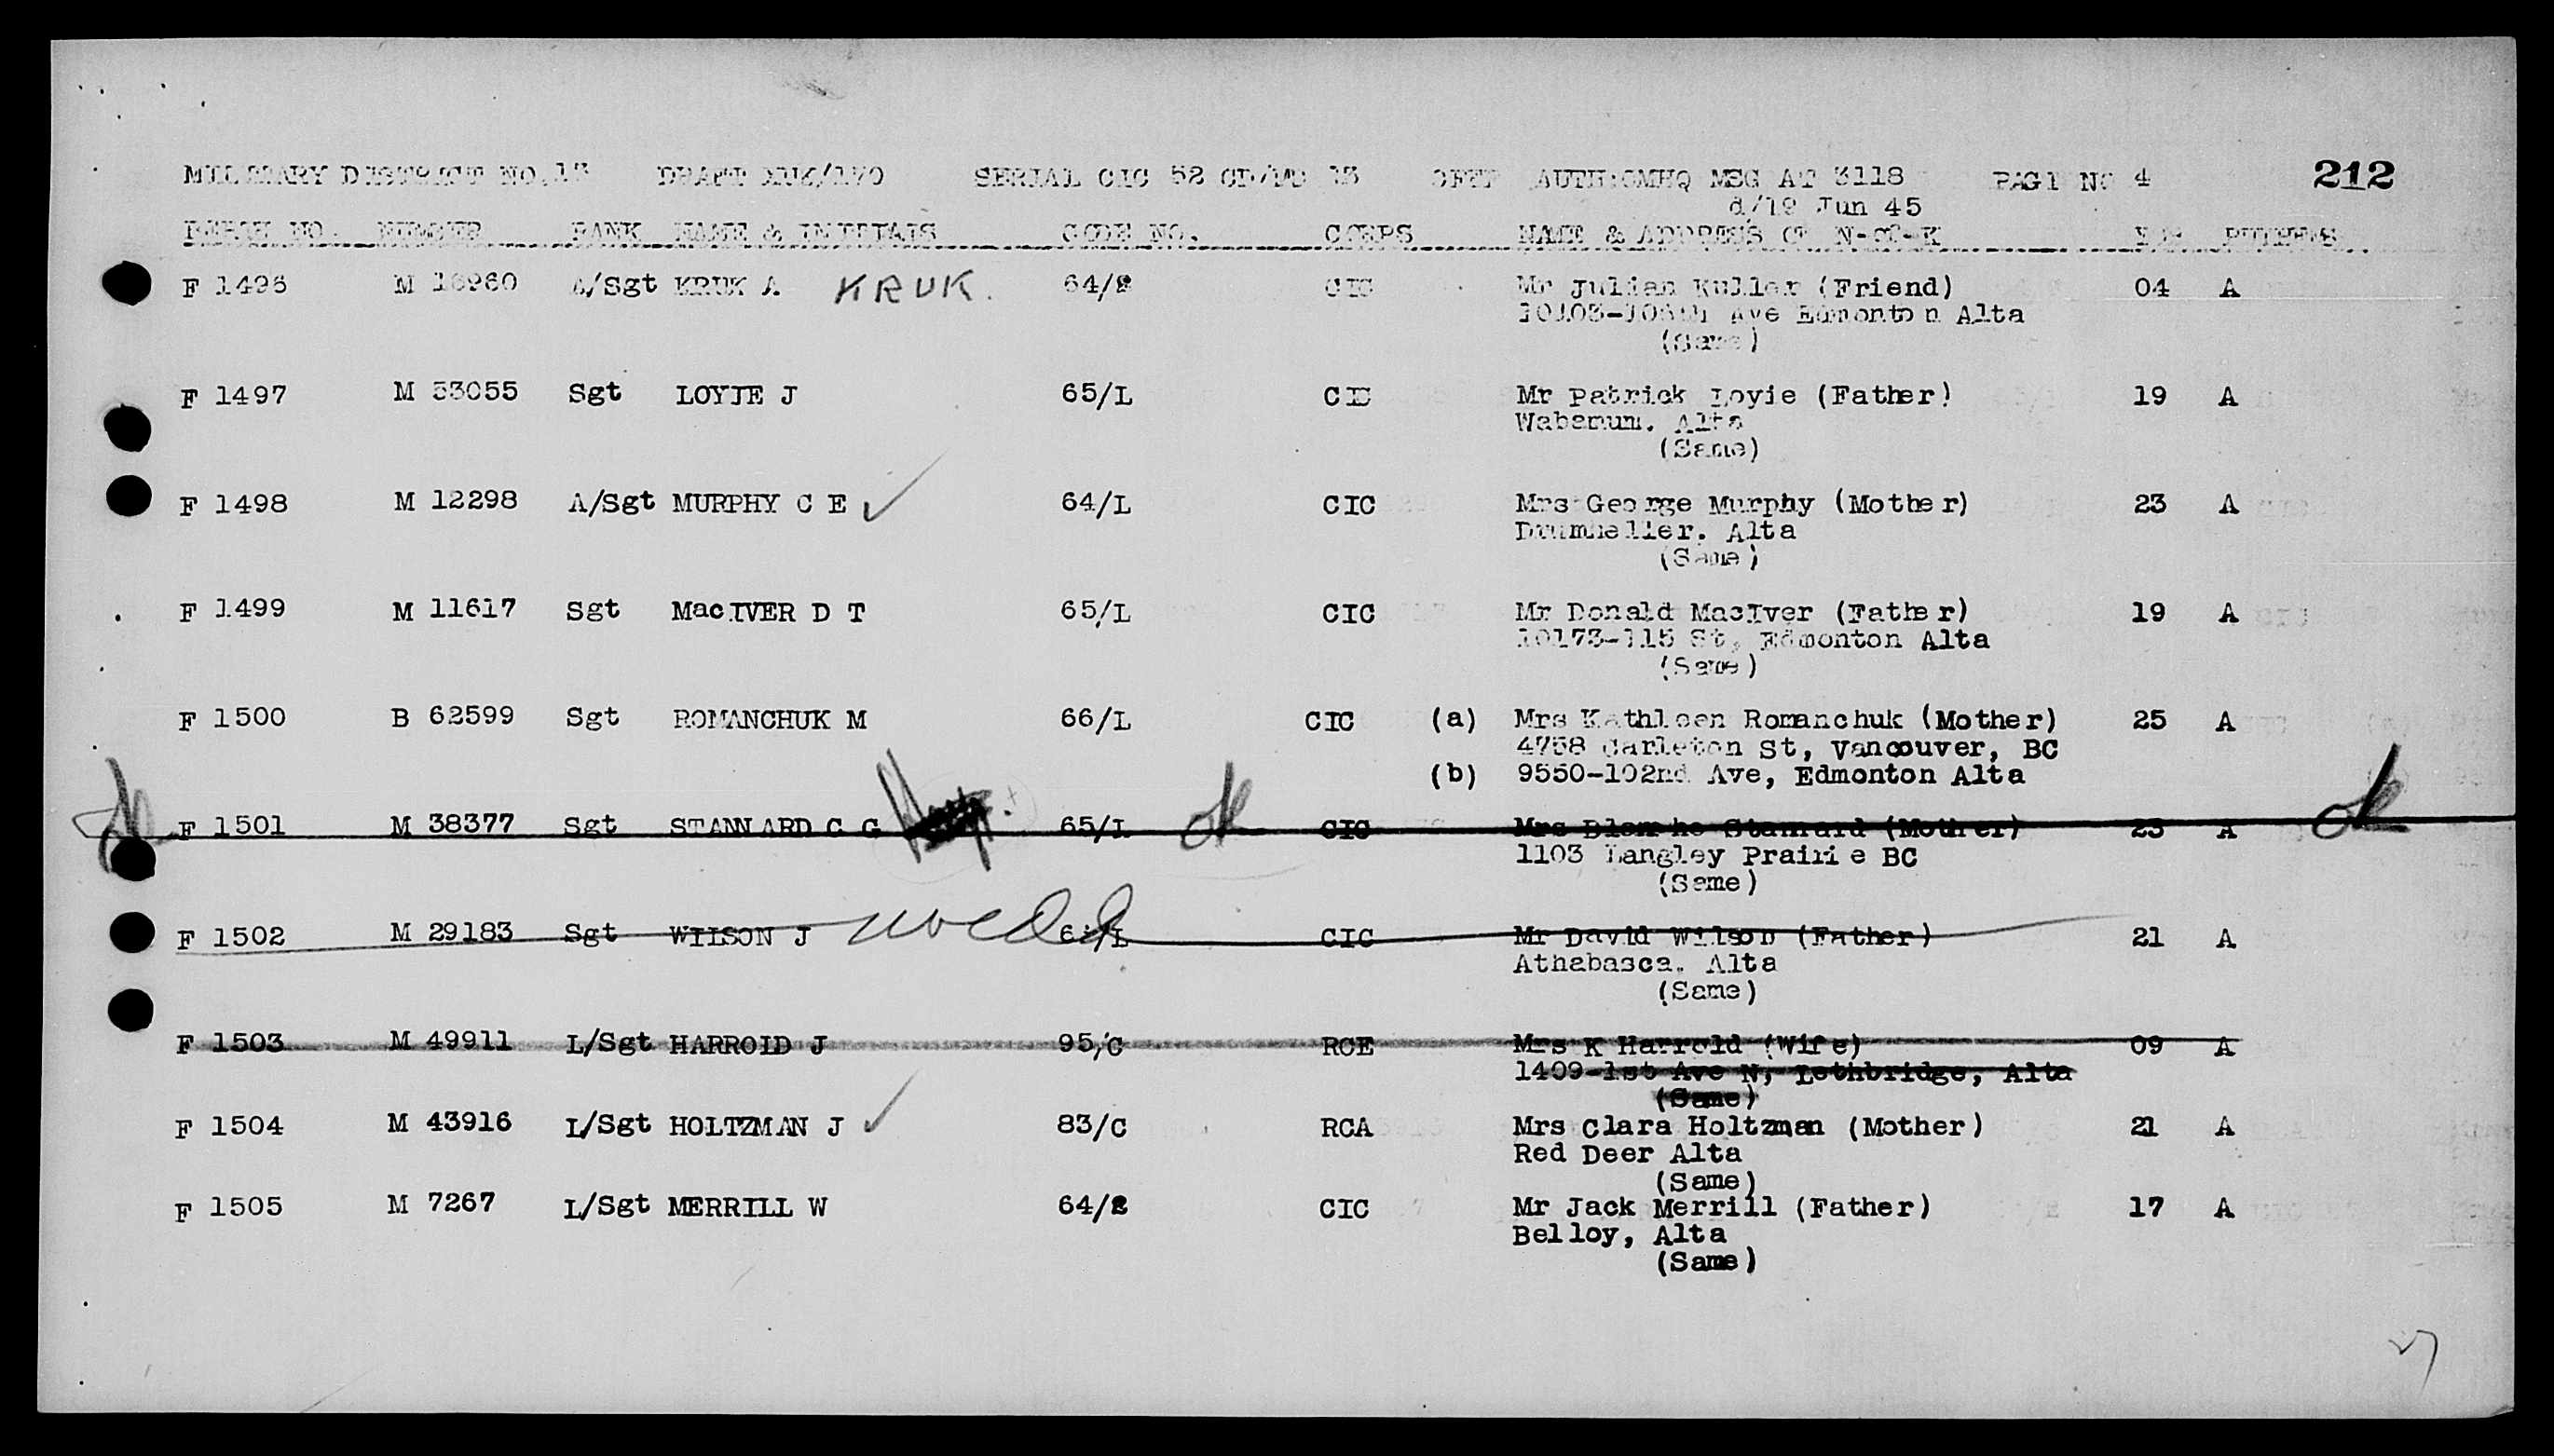 MILITARY DISTRICT NO.13 DRAFT SERIAL CIC 52 CD/MD 13 AUTH:CMHQ MSG AT 3118 PAGE NO 4 212
d/19 Jun 45
BERTH NO. NUMBER RANK NAME & INITIALS CODE NO. CORPS NAME & ADDRESS OF N-of-K
F 1496 M A/Sgt KRUK A KRUK. 64/2 CIC Mr Julian Kuller (Friend) 04 A
Ave Edmonton Alta
(Same)
F 1497 M 53055 Sgt LOYIE J 65/L CIC Mr Patrick Loyie (Father) 19 A
Wabamum. Alta
(Same)
F 1498 M 12298 A/Sgt MURPHY C E ✓ 64/L CIC Mrs George Murphy (Mother) 23 A
Drumheller. Alta
(Same)
F 1499 M 11617 Sgt MacIVER D T 65/L CIC Mr Donald MacIver (Father) 19 A
10173-115 St, Edmonton Alta
(Same)
F 1500 B 62599 Sgt ROMANCHUK M 66/L CIC (a) Mrs Kathleen Romanchuk (Mother) 25 A
4758 Carleton St, Vancouver, BC
(b) 9550-102nd Ave, Edmonton Alta
ok F 1501 M 38377 Sgt STANNARD C G 65/L ok CIC Mrs Blanche Stannard (Mother) 23 A ok
1103 Langley Prairie BC
(Same)
F 1502 M 29183 Sgt WILSON J CIC Mr David Wilson (Father) 21 A
Athabasca. Alta
(Same)
F 1503 M 49911 L/Sgt HARROLD J 95/C RCE Mrs K Harrold (Wife) 09 A
1409-1st Ave N, Lethbridge, Alta
(Same)
F 1504 M 43916 L/Sgt HOLTZMAN J ✓ 83/C RCA Mrs Clara Holtzman (Mother) 21 A
Red Deer Alta
(Same)
F 1505 M 7267 L/Sgt MERRILL W 64/2 CIC Mr Jack Merrill (Father) 17 A
Belloy, Alta
(Same)